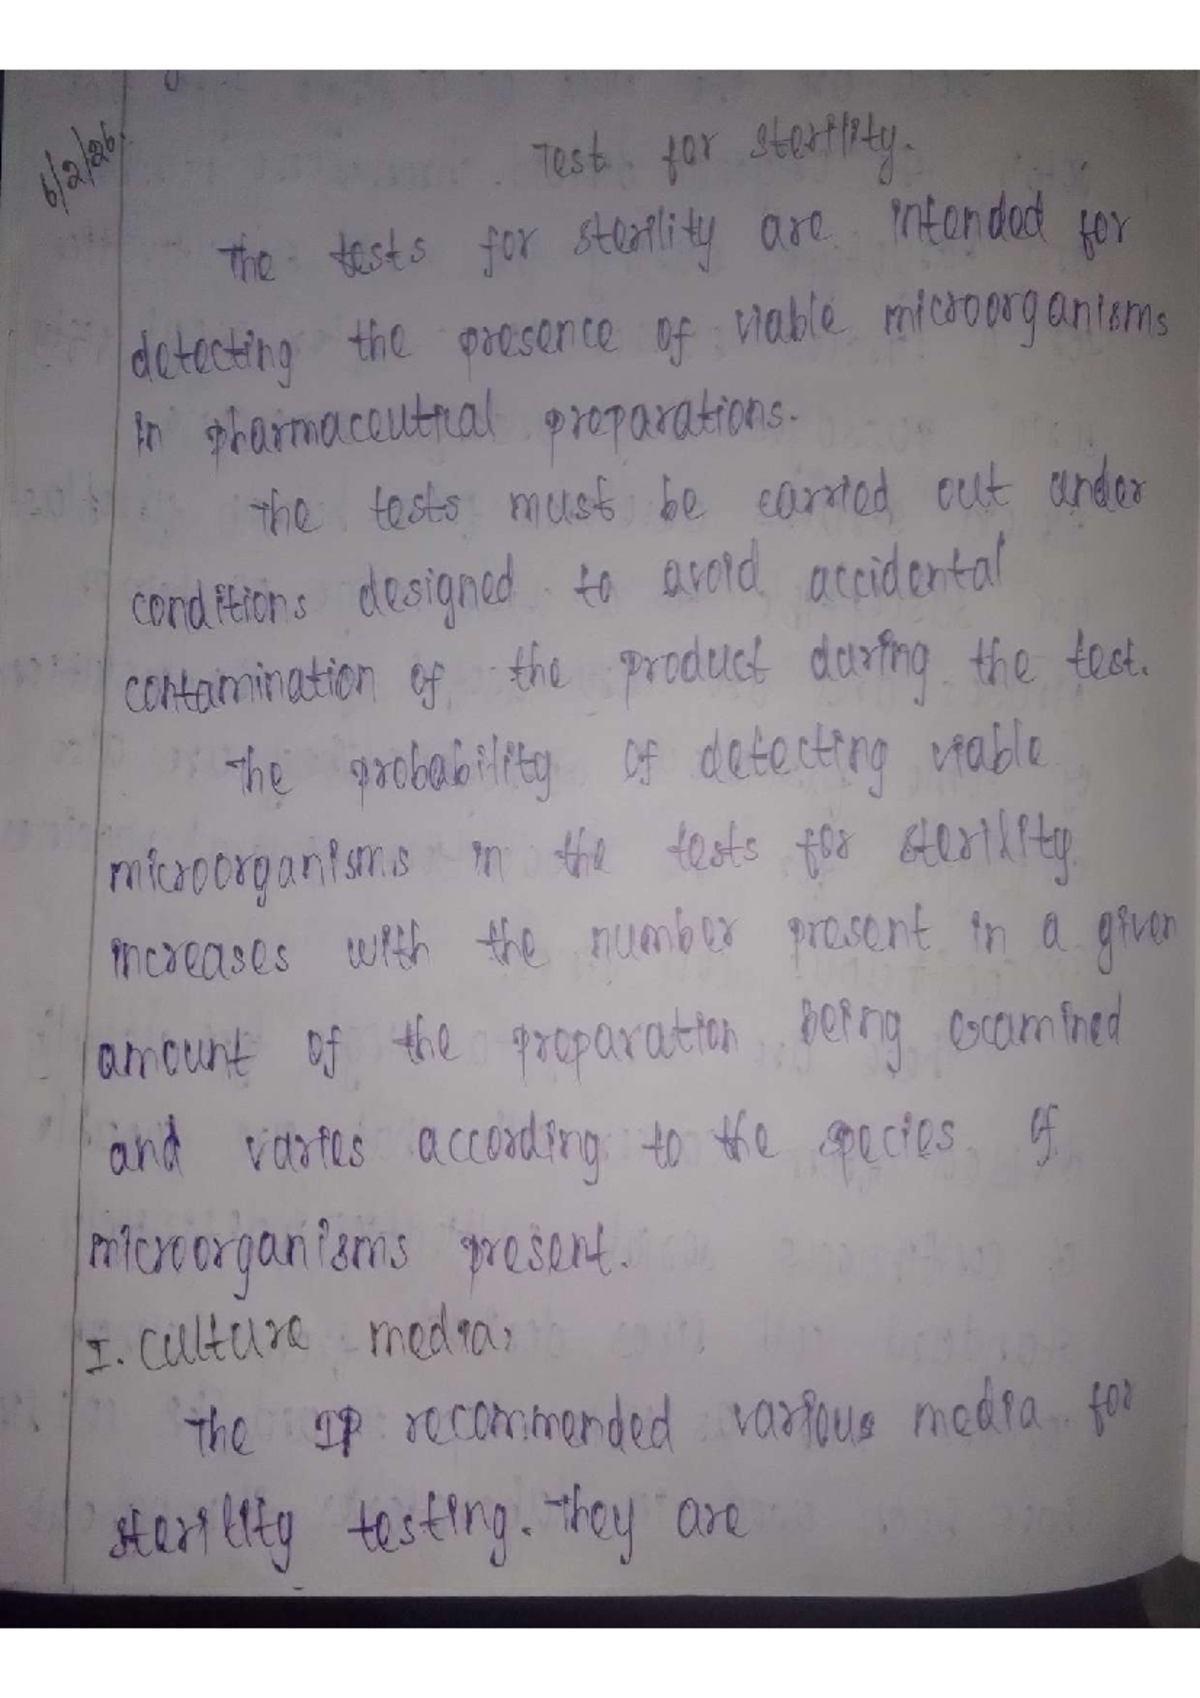 6/2/26.
Test for sterility.
The tests for sterility are intended for
detecting the presence of viable microorganisms
in pharmaceutical preparations.
The tests must be carried out under
conditions designed to avoid accidental
contamination of the product during the test.
The probability of detecting viable
microorganisms in the tests for sterility
increases with the number present in a given
amount of the preparation being examined
and varies according to the species of
microorganisms present.
I. Culture media:
The IP recommended various media for
sterility testing. They are